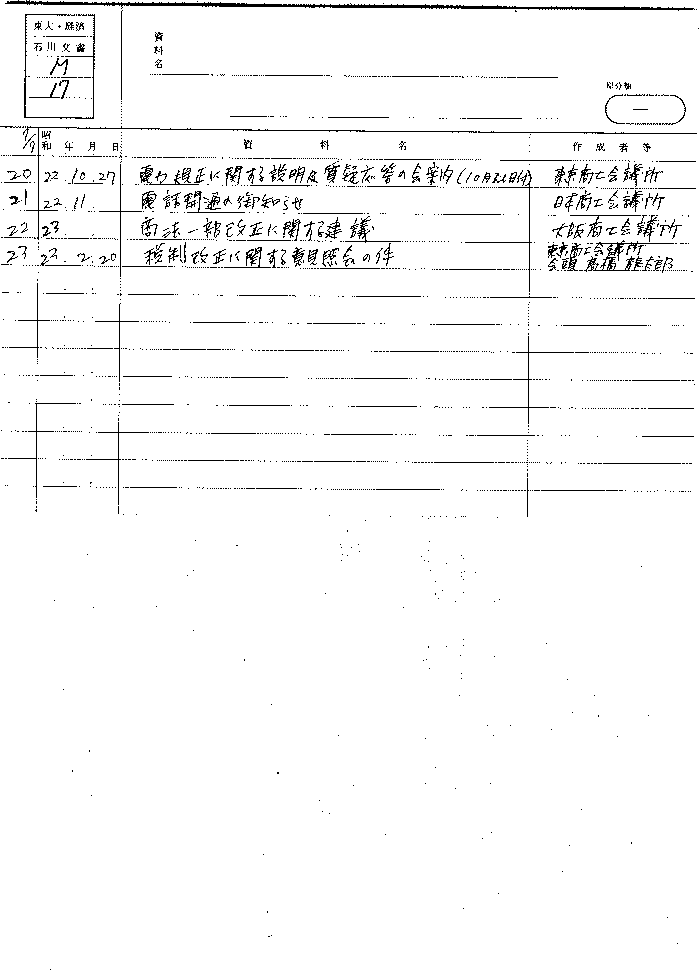 東大・経済
石川文書
M
17
資料名
原分類
一
昭和 年 月 日 資料名 作成者等
20 22.10.27 電力規正に関する説明及質疑応答の会案内(10月26日付) 東京商工会議所
21 22.11. 電話開通の御知らせ 日本商工会議所
22 23. 商法一部改正に関する建議 大阪商工会議所
23 23.2.20 税制改正に関する意見照会の件 東京商工会議所
会頭 高橋龍太郎